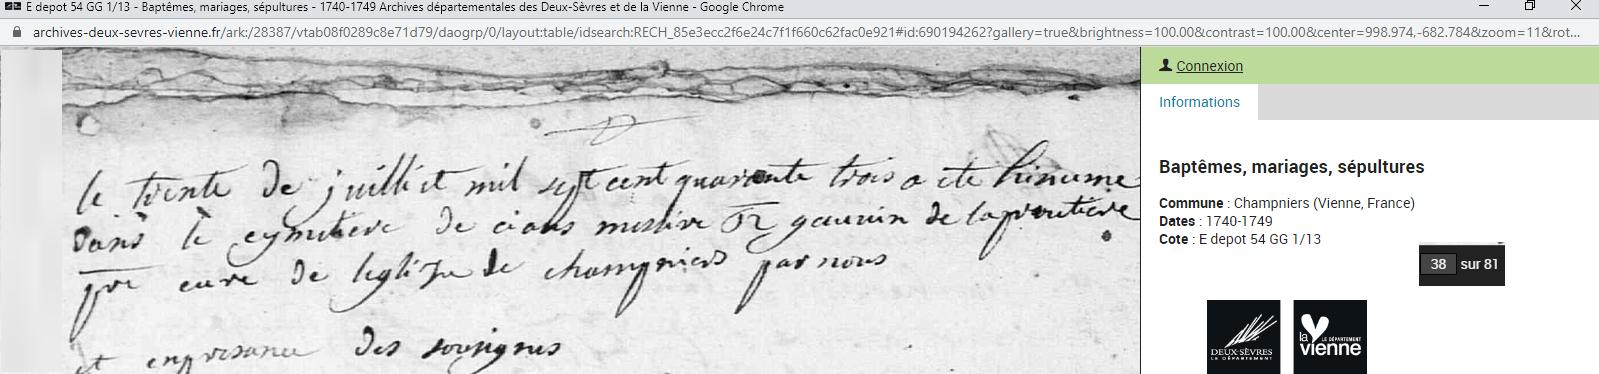 E depot 54 GG 1/13 - Baptêmes, mariages, sépultures - 1740-1749 Archives départementales des Deux-Sèvres et de la Vienne - Google Chrome
archives-deux-sevres-vienne.fr/ark:/28387/vtab08f0289c8e71d79/daogrp/0/layout:table/idsearch:RECH_85e3ecc2f6e24c7f1f660c62fac0e921#id:690194262?gallery=true&brightness=100.00&contrast=100.00&center=998.974,-682.784&zoom=11&rot...
le trente de juilliet mil sept cent quarante trois a ete hinume
dans le cymitiere de ceans messire gauvin de laproutiere
pre cure de leglize de champniers par nous
et enpresance des sousignes
Connexion
Informations
Baptêmes, mariages, sépultures
Commune : Champniers (Vienne, France)
Dates : 1740-1749
Cote : E depot 54 GG 1/13
38 sur 81
DEUX-SÈVRES
LE DÉPARTEMENT
la vienne
LE DÉPARTEMENT